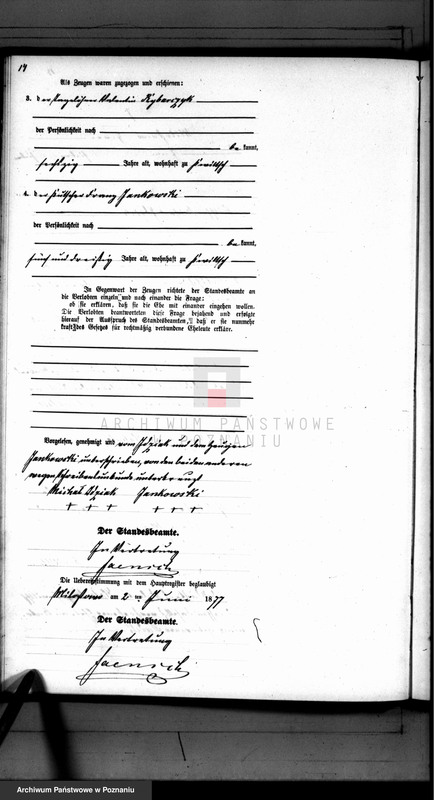 14
Als Zeugen waren zugezogen und erschienen:
3. der Tagelöhner Valentin Rybarczyk
der Persönlichkeit nach
be kannt,
sechzig Jahre alt, wohnhaft zu
4. der Kutscher Franz Jankowski
der Persönlichkeit nach
be kannt,
fünf und dreißig Jahre alt, wohnhaft zu
In Gegenwart der Zeugen richtete der Standesbeamte an
die Verlobten einzeln und nach einander die Frage:
ob sie erklären, daß sie die Ehe mit einander eingehen wollen.
Die Verlobten beantworteten diese Frage bejahend und erfolgte
hierauf der Ausspruch des Standesbeamten, daß er sie nunmehr
kraft des Gesetzes für rechtmäßig verbundene Eheleute erkläre.
ARCHIWUM PAŃSTWOWE
POZNANIU
Vorgelesen, genehmigt und vom und dem Zeugen
Jankowski unterschrieben, von den beiden anderen
wegen Schreibensunkunde unterkreuzt
Michał Jankowski
+ + + + + +
Der Standesbeamte.
In Vertretung
Jaensch
Die Uebereinstimmung mit dem Hauptregister beglaubigt
Miloslaw am 2 ten Juni 1877
Der Standesbeamte.
In Vertretung
Jaensch
Archiwum Państwowe w Poznaniu